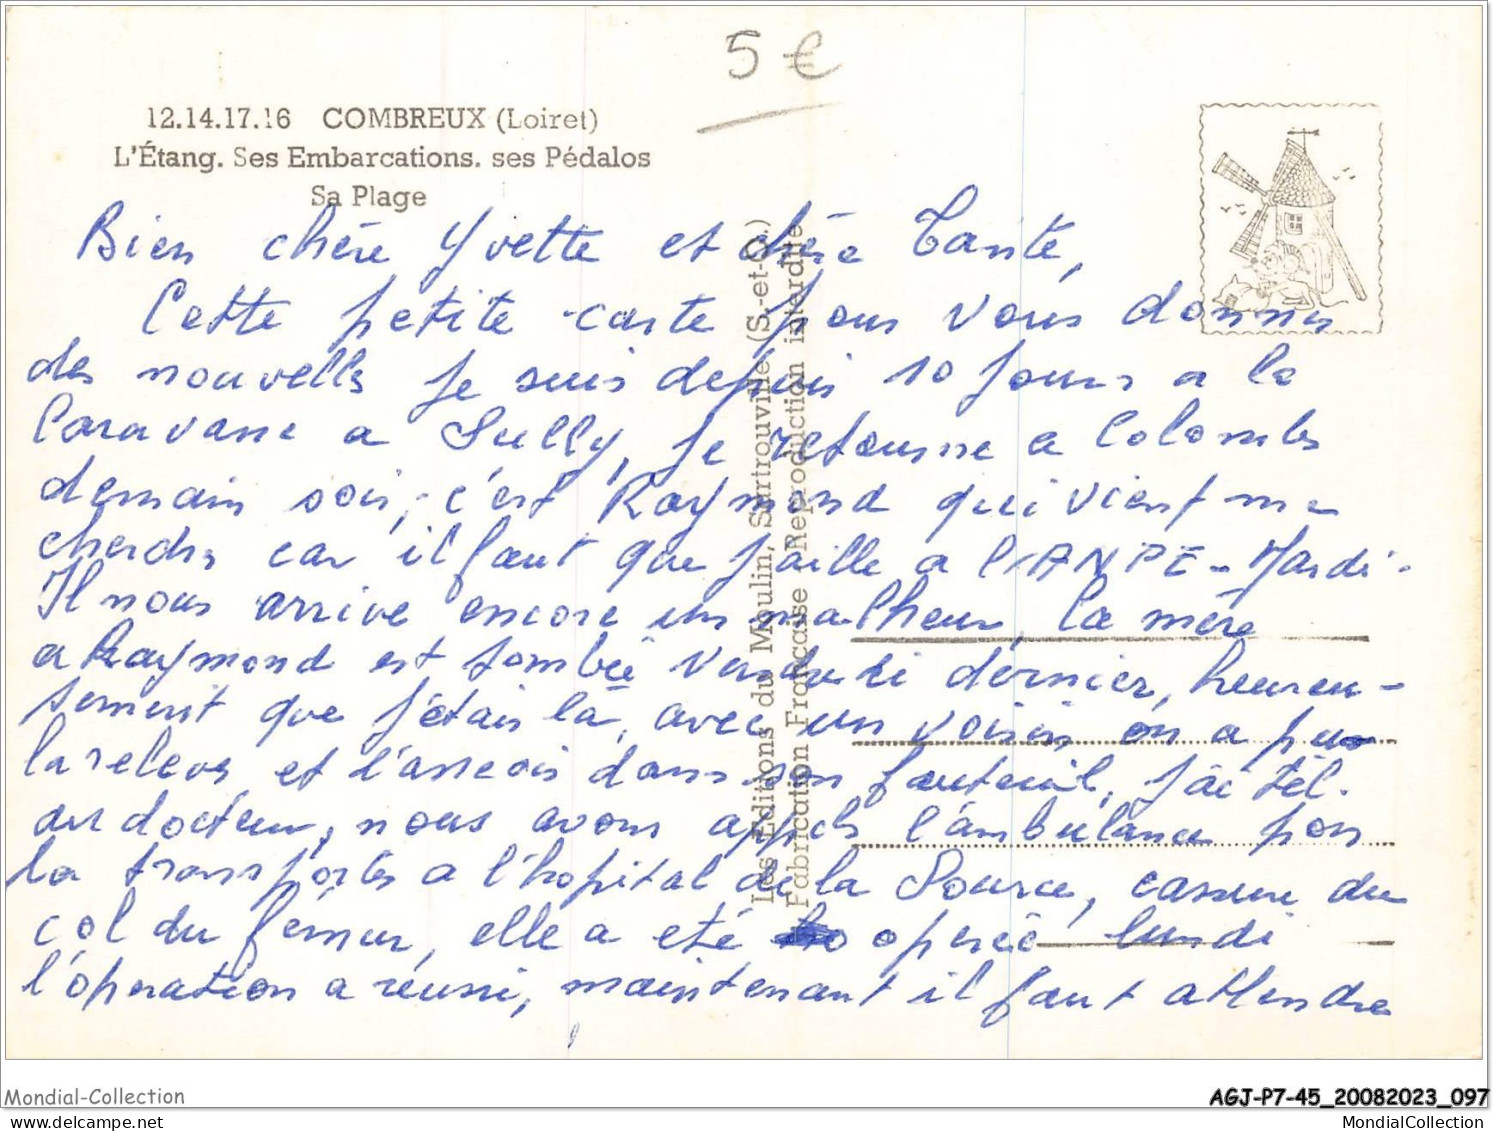 5 €
12.14.17.16 COMBREUX (Loiret)
L'Étang. Ses Embarcations. ses Pédalos
Sa Plage
Bien chère Yvette et chère Tante,
Cette petite carte pour vous donner
des nouvelles je suis depuis 10 jours a la
Caravane a Sully, je retourne a Colombes
demain soir, c'est Raymond qui vient me
cherche car il faut que j'aille a l'ANPE - Mardi.
Il nous arrive encore un malheur, la mère
a Raymond est tombée vendredi dernier, heureu-
sement que j'étais là, avec un voisin on a pu
la relever et l'asseoir dans son fauteuil, j'ai tél.
au docteur, nous avons appelé l'ambulance pour
la transporter a l'hopital de la Source, cassure du
col du fémur, elle a eté operée lundi
l'operation a réussi, maintenant il faut attendre
Les Editions du Moulin, Sartrouville (S.-et-O.)
Fabrication Française Reproduction interdite
Mondial-Collection
AGJ-P7-45_20082023_097
MondialCollection